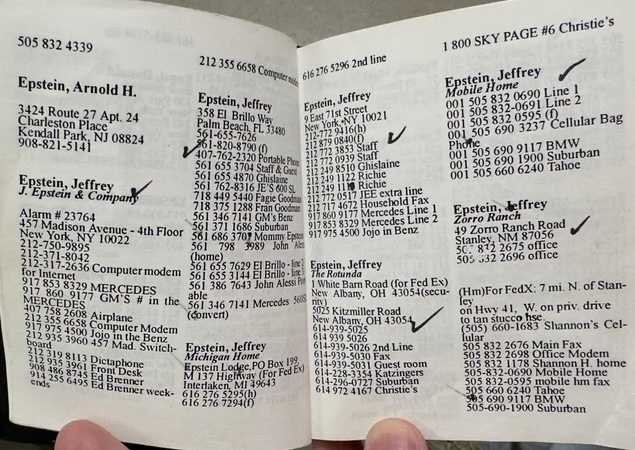 505 832 4339
Epstein, Arnold H.
3424 Route 27 Apt. 24
Charleston Place
Kendall Park, NJ 08824
908-821-5141
Epstein, Jeffrey
J. Epstein & Company
Alarm # 23764
457 Madison Avenue - 4th Floor
New York, NY 10022
212-750-9895
212-371-8042
212-317-2636 Computer modem
for Internet
917 853 8329 MERCEDES
917 860 9177 GM'S # in the
MERCEDES
407 758 2608 Airplane
212 355 6658 Computer Modem
917 975 4500 Jojo in the Benz
212 935 3960 457 Mad. Switch-
board
212 319 8113 Dictaphone
212 935 3961 Front Desk
908 486 8745 Ed Brenner
914 255 6495 Ed Brenner week-
ends
212 355 6658 Computer
Epstein, Jeffrey
358 El Brillo Way
Palm Beach, FL 33480
561-655-7626
561-820-8790 (f)
407-762-2320 Portable Phone
561 655 3704 Staff & Guest
561 655 4870 Ghislaine
561 762-8316 JE'S 600 SL
718 449 5440 Fagie Goodman
718 375 1288 Fran Goodman
561 346 7141 GM's Benz
561 371 1686 Suburban
561 686 Mommy Epstein
561 798 3989 John Alessi
(home)
561 655 7629 El Brillo - line
561 655 3144 El Brillo - line
561 386 7643 John Alessi Port-
able
561 346 7141 Mercedes
(convert)
Epstein, Jeffrey
Michigan Home
Epstein Lodge, PO Box 199
M 137 Highway (For Fed Ex)
Interlaken, MI 49643
616 276 5295(h)
616 276 7294(f)
616 276 5296 2nd line
Epstein, Jeffrey
9 East 71st Street
New York, NY 10021
212-772-9416(h)
212 879 0840(f)
212 772 3853 Staff
212 772 0939 Staff
212 249 8510 Ghislaine
212 249 1122 Richie
212 249 Richie
212 772 0517 JEE extra line
212 717 4672 Household Fax
917 860 9177 Mercedes Line 1
917 853 8329 Mercedes Line 2
917 975 4500 Jojo in Benz
Epstein, Jeffrey
The Rotunda
1 White Barn Road (for Fed Ex)
New Albany, OH 43054(secu-
rity)
5025 Kitzmiller Road
New Albany, OH 43054
614-939-5025
614 939 5026
614-939-5026 2nd Line
614-939-5030 Fax
614-939-5031 Guest room
614-228-3354 Katzingers
614-296-0727 Suburban
614 972 4167 Christie's
1 800 SKY PAGE #6 Christie's
Epstein, Jeffrey
Mobile Home
001 505 832 0690 Line 1
001 505 832-0691 Line 2
001 505 832 0595 (f)
001 505 690 3237 Cellular Bag
Phone
001 505 690 9117 BMW
001 505 690 1900 Suburban
001 505 660 6240 Tahoe
Epstein, Jeffrey
Zorro Ranch
49 Zorro Ranch Road
Stanley, NM 87056
832 2675 office
832 2696 office
(Hm)For FedX: 7 mi. N. of Stan-
ley
on Hwy 41, W. on priv. drive
to tan stucco hse.
(505) 660-1683 Shannon's Cel-
lular
505 832 2676 Main Fax
505 832 2698 Office Modem
505 832 1178 Shannon H. home
505-832-0690 Mobile Home
505-832-0595 mobile hm fax
505 660 6240 Tahoe
505 690 9117 BMW
505-690-1900 Suburban